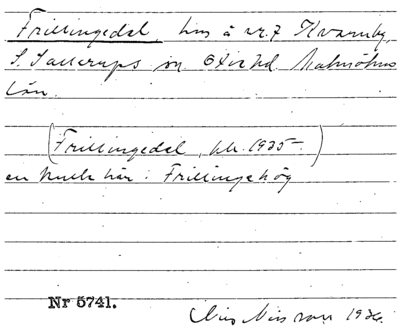 Frillingedal, hus å nr. 7 Kvarnby,
S. Sallerups sn Oxie hd Malmöhus
län.
(Frillingedal, bl. 1925 –)
en kulle här : Frillingehög
Nr 5741.
Nils Nilsson 1926.